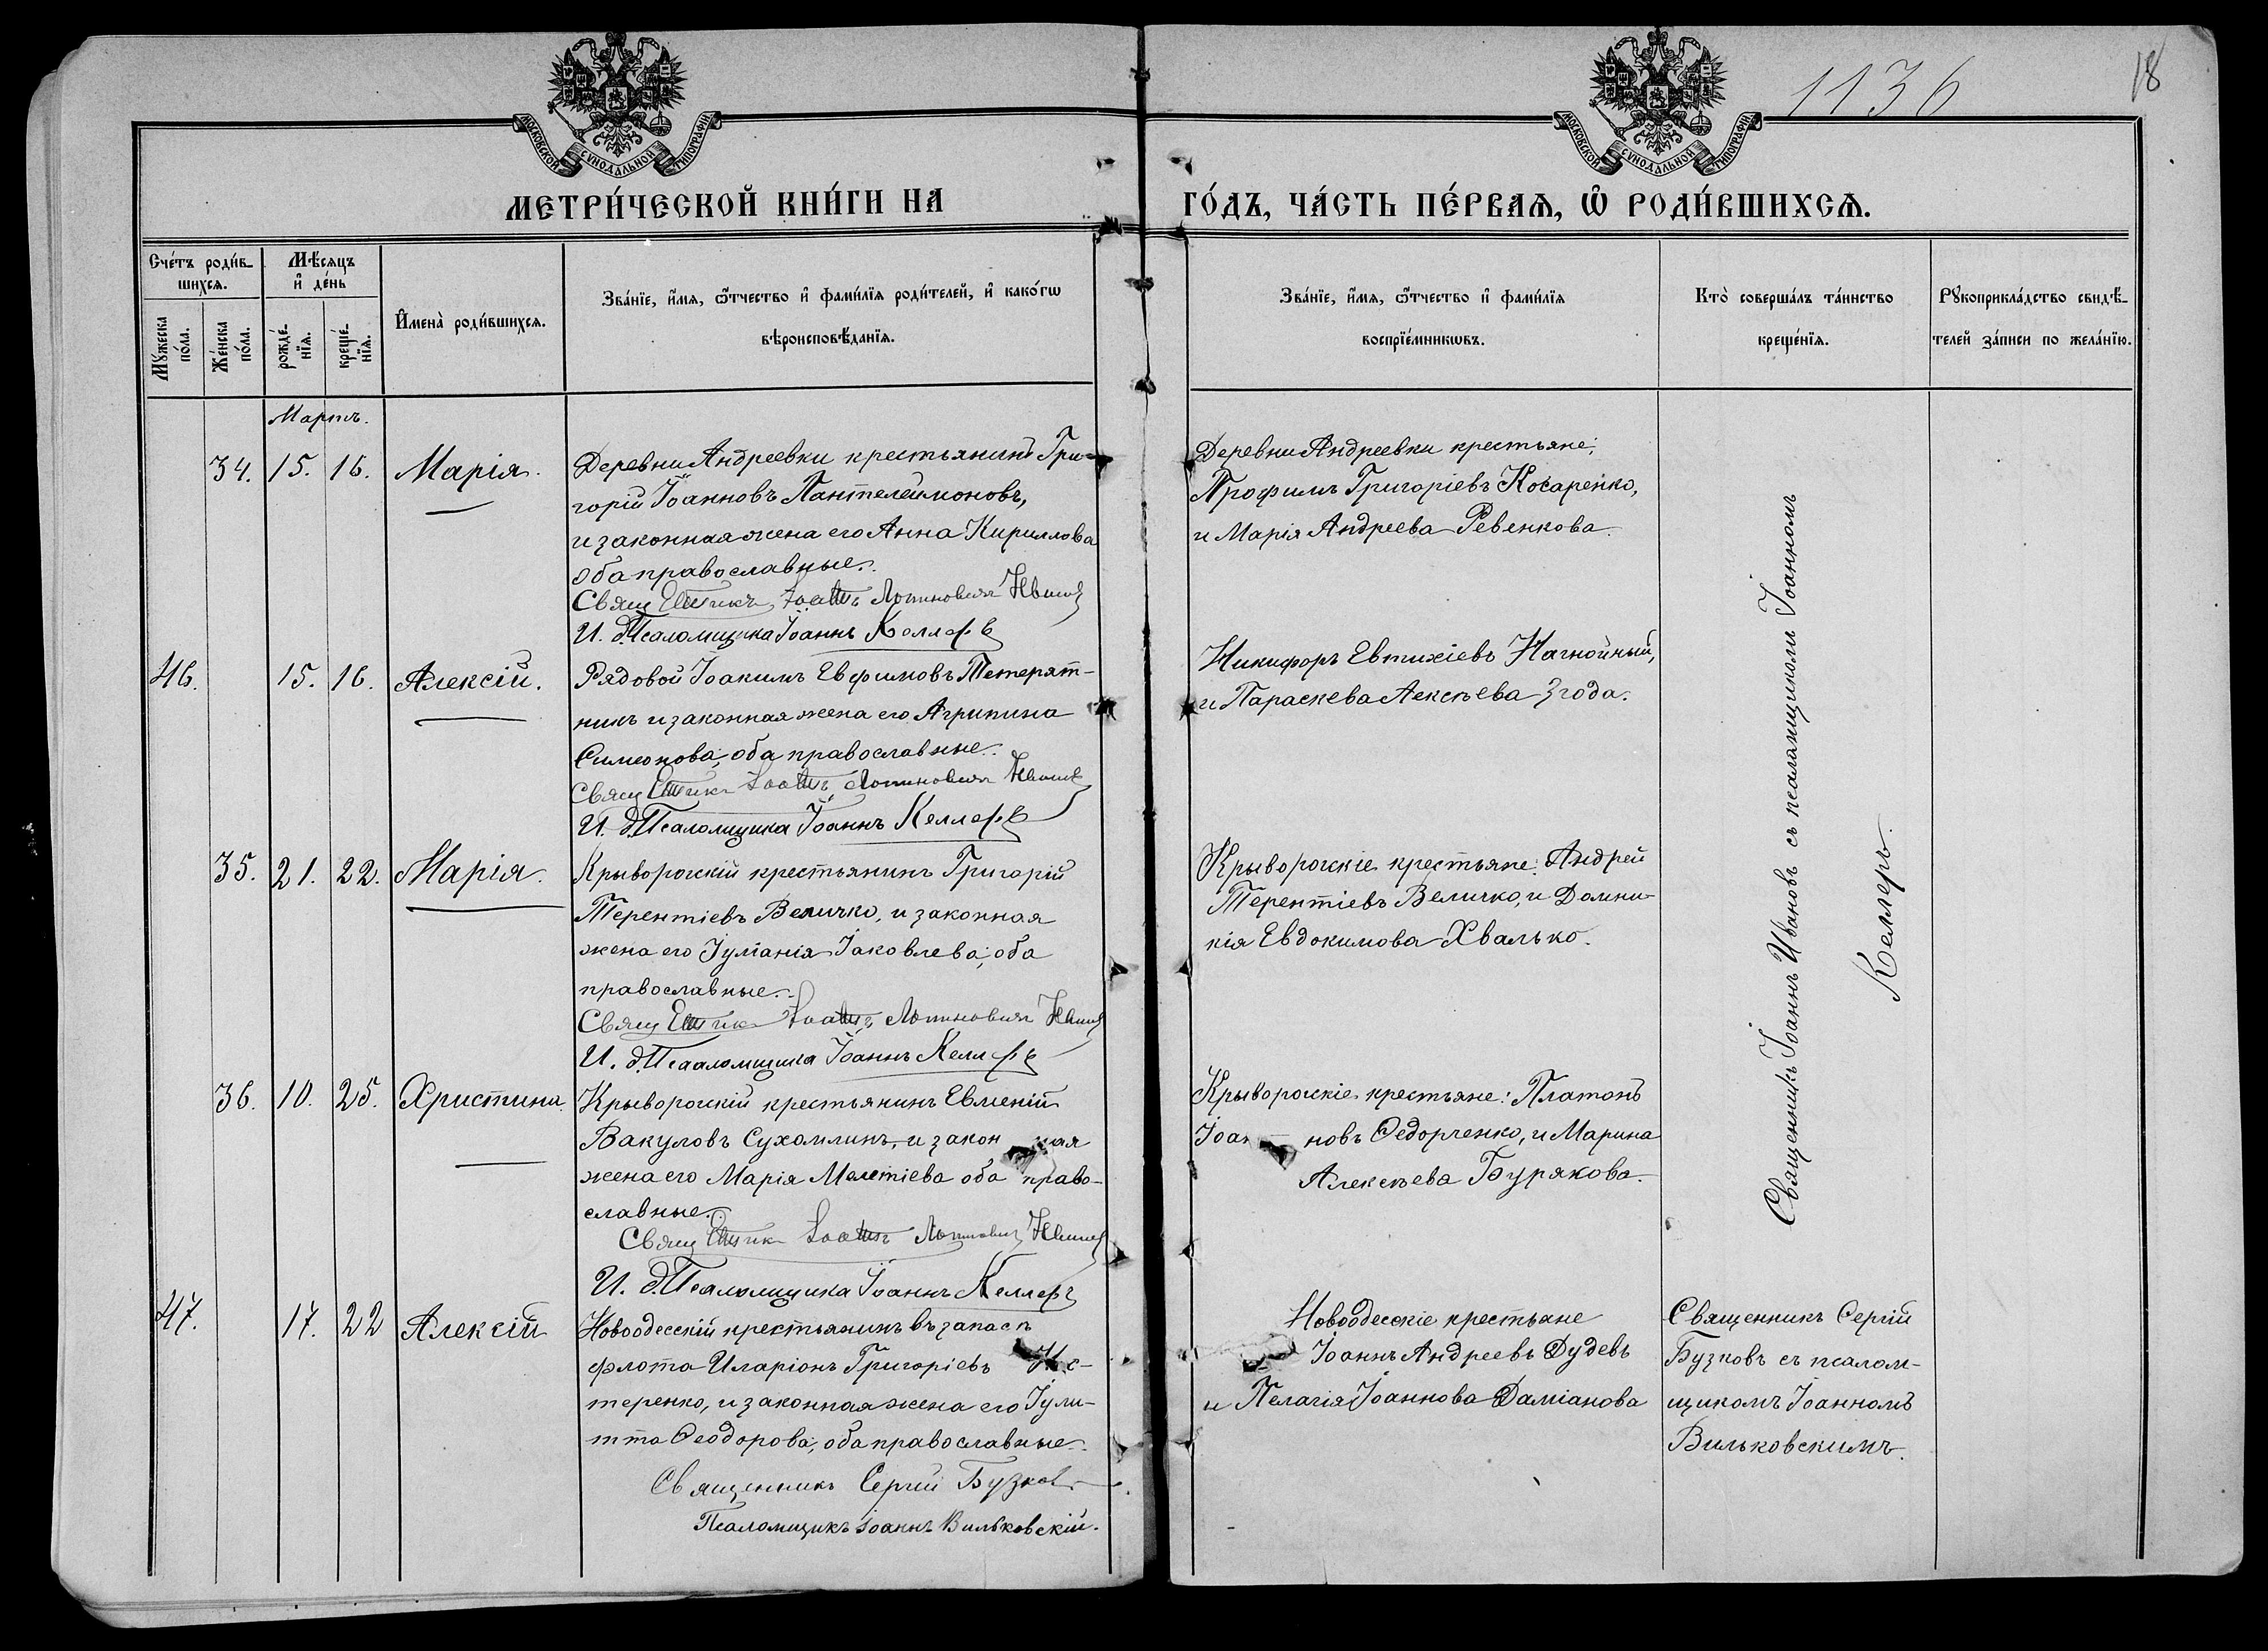 1136
18
МОСКОВСКОЙ СѴНОДАЛЬНОЙ ТИПОГРАФІИ
МОСКОВСКОЙ СѴНОДАЛЬНОЙ ТИПОГРАФІИ
МЕТРИ́ЧЕСКОЙ КНИ́ГИ НА
ГО́ДЪ, ЧА́СТЬ ПЕ́РВАѦ, Ѽ РОДИ́ВШИХСѦ.
Сче́тъ роди́в-
шихсѧ.
Мѣ́сѧцъ
и҆ де́нь
Мꙋ́жеска
по́ла.
Же́нска
по́ла.
рожде́-
нїѧ.
креще́-
нїѧ.
И҆мена̀ роди́вшихсѧ.
Зва́нїе, и҆́мѧ, ѻ҆́тчество и҆ фами́лїѧ роди́телей, и҆ како́гѡ
вѣроисповѣ́данїѧ.
Зва́нїе, и҆́мѧ, ѻ҆́тчество и҆ фами́лїѧ
воспрїе́мникѡвъ.
Кто̀ соверша́лъ та́инство
креще́нїѧ.
Рꙋкоприкла́дство свидѣ́-
телей за́писи по жела́нїю.
Мартъ.
34. 15. 16. Марія.
Деревни Андреевки крестьянинъ Гри-
горій Іоанновъ Пантелеймоновъ,
и законная жена его Анна Кириллова
оба православные.
Свящ Іоаннъ
И. д. Псаломщика Іоаннъ Келлеръ
Деревни Андреевки крестьяне:
Трофимъ Григоріевъ Косаренко,
и Марія Андреева Ревенкова.
46. 15. 16. Алексій.
Рядовой Іоакимъ Евфимовъ Тетерят-
никъ и законная жена его Агрипина
Симеонова; оба православные.
Свящ Іоаннъ
И. д. Псаломщика Іоаннъ Келлеръ
Никифоръ Евтихіевъ Нагнойный,
и Параскева Алексѣева Згода.
35. 21. 22. Марія.
Крыворожскій крестьянинъ Григорій
Терентіевъ Величко, и законная
жена его Іуліанія Іаковлева; оба
православные.
Свящ Іоаннъ
И. д. Псаломщика Іоаннъ Келлеръ
Крыворожскіе крестьяне: Андрей
Терентіевъ Величко, и Домни-
кія Евдокимова Хвалько.
36. 10. 25. Христина.
Крыворожскій крестьянинъ Евменій
Вакуловъ Сухомлинъ, и законная
жена его Марія Мелетіева оба право-
славные.
Свящ Іоаннъ
И. д. Псаломщика Іоаннъ Келлеръ
Крыворожскіе крестьяне: Платонъ
Іоанновъ Ѳедорченко, и Марина
Алексѣева Бурякова.
Священникъ Іоаннъ Ивановъ съ псаломщикомъ Іоанномъ
Келлеръ.
47. 17. 22 Алексій
Новоодесскій крестьянинъ въ запасѣ
флота Иларіонъ Григоріевъ Не-
теренко, и законная жена его Іули-
тта Ѳеодорова; оба православные.
Священникъ Сергій Бузковъ
Псаломщикъ Іоаннъ Вильковскій.
Новоодесскіе крестьяне
Іоаннъ Андреевъ Дудевъ
и Пелагія Іоаннова Даміанова
Священникъ Сергій
Бузковъ съ псалом-
щикомъ Іоанномъ
Вильковскимъ.